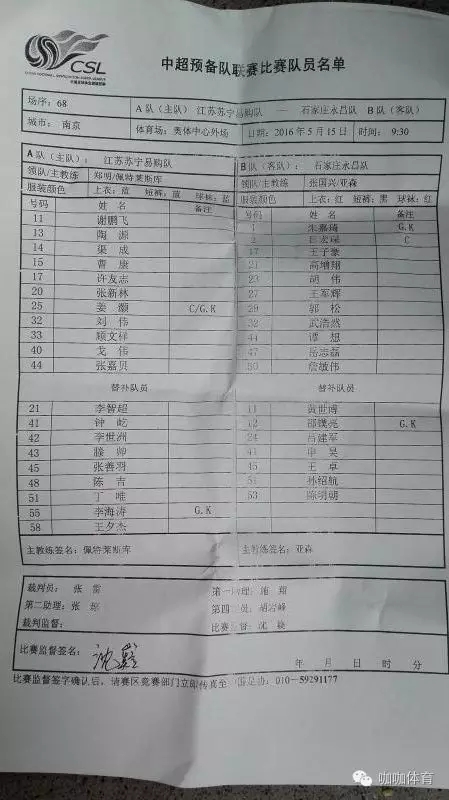 CSL
中超预备队联赛比赛队员名单
场序：68 A队（主队） 江苏苏宁易购队 — 石家庄永昌队 B队（客队）
城市：南京 体育场：奥体中心外场 日期：2016年5月15日 时间： 9:30
A队（主队）： 江苏苏宁易购队 B队（客队）： 石家庄永昌队
领队/主教练 郑明/佩特莱斯库 领队/主教练 张国兴/亚森
服装颜色 上衣：蓝 短裤：蓝 球袜：蓝 服装颜色 上衣：红 短裤：黑 球袜：红
号码 姓 名 备注 号码 姓 名 备注
11 谢鹏飞 1 朱嘉琦 G.K
13 陶源 2 C
14 渠成 17 王子豪
15 曹康 21 高增翔
17 许友志 23 胡伟
20 张新林 27 王军辉
25 姜灏 C/G.K 29 郭松
32 刘伟 32 武浩然
33 顾文祥 44 谭想
40 戈伟 47 岳志磊
44 张嘉贝 50 詹毓伟
替补队员 替补队员
21 李智超 11 黄世博
41 钟屹 12 邵镤亮 G.K
42 李世洲 24 吕建军
43 滕帅 41 申昊
45 张善羽 45 王卓
48 陈吉 51 孙绍航
51 丁唯 53 陈明朝
55 李海涛 G.K
58 王夕杰
主教练签名：佩特莱斯库 主教练签名：亚森
裁判员： 张雷 第一助理：施翔
第二助理：张 第四 员：胡岩峰
裁判监督： 比赛 督：沈
比赛监督签名： 年 月 日 时 分
比赛监督签字确认后，请赛区竞赛部门立即传真至 国足协：010-59291177
咖咖体育